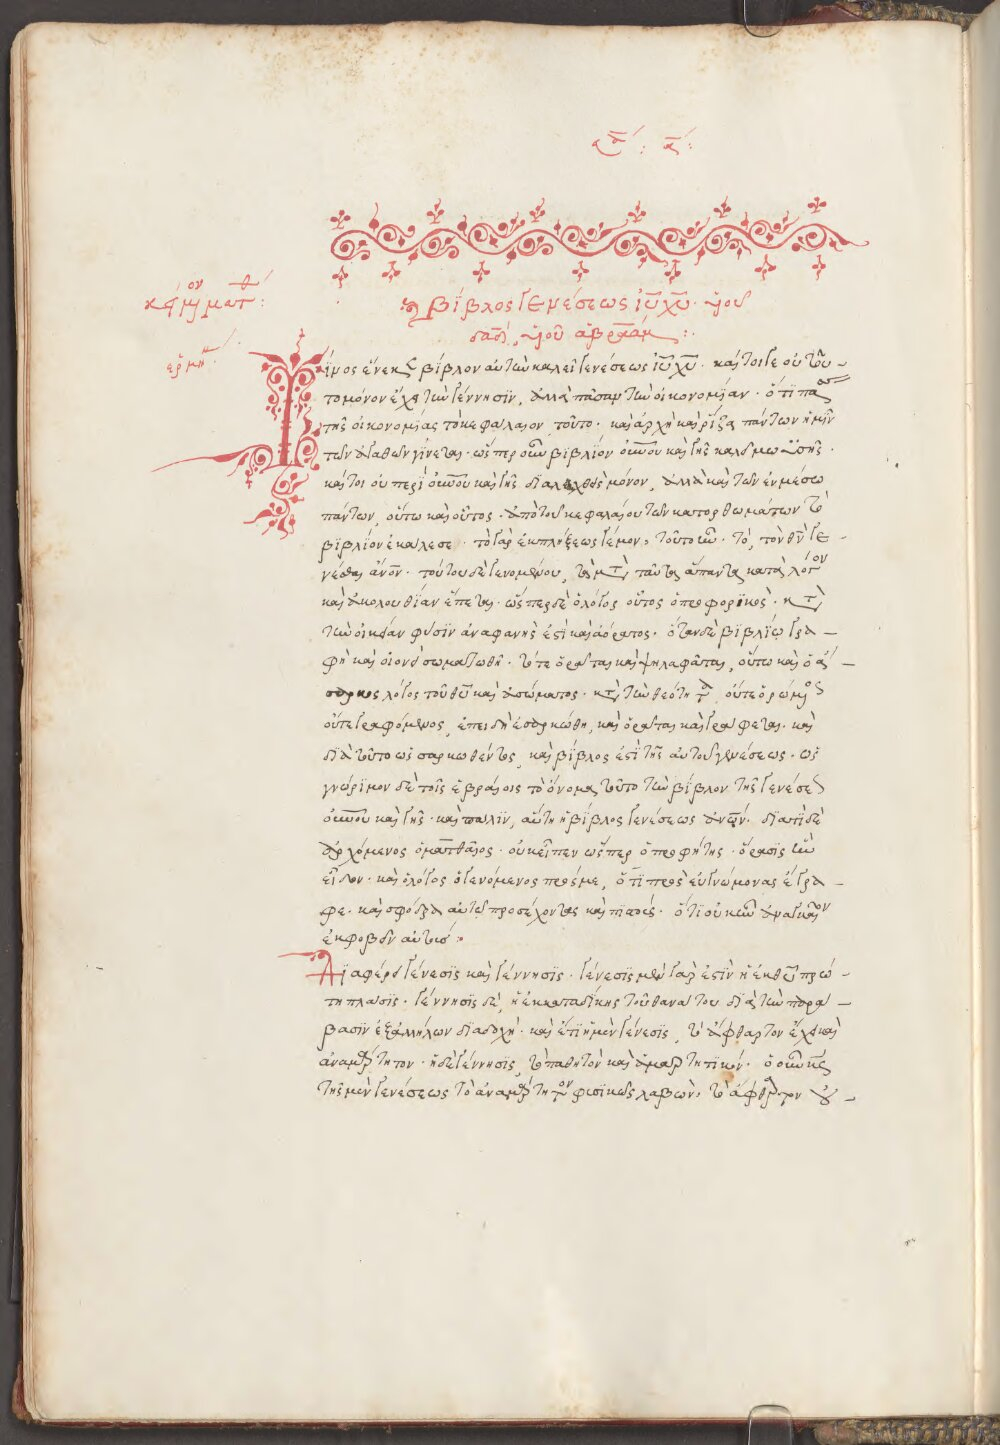 κείμενον ματθ
Βίβλος Γενέσεως ἰῡ χῡ· υἱοῦ
δαδ, υἱοῦ ἀβραάμ :·
ἑρμη
Τίνος ἕνεκεν βίβλον αὐτὴν καλεῖ γενέσεως ἰῡ χῡ· καίτοιγε οὐ τοῦ-
το μόνον ἔχει τὴν γέννησιν, ἀλλὰ πᾶσαν τὴν οἰκονομίαν· ὅτι πάσης
τῆς οἰκονομίας τὸ κεφάλαιον τοῦτο· καὶ ἀρχὴ καὶ ρίζα πάντων ἡμῖν
τῶν ἀγαθῶν γίνεται· ὥσπερ οὖν βιβλίον οὐνοῦ καὶ γῆς καλεῖ μωϋσῆς·
καίτοι οὐ περὶ οὐνοῦ καὶ γῆς διαλεχθεὶς μόνον, ἀλλὰ καὶ τῶν ἐν μέσω
πάντων, οὕτω καὶ οὗτος· ἀπὸ τοῦ κεφαλαίου τῶν κατορθωμάτων τὸ
βιβλίον ἐκάλεσε· τὸ γὰρ ἐκπλήξεως γέμον, τοῦτο ἦν· τὸ, τὸν θν γε-
νέσθαι ἄνον· τούτου δὲ γενομένου, τὰ μετὰ ταῦτα ἅπαντα κατὰ λόγον
καὶ ἀκολουθίαν ἕπεται· ὥσπερ δὲ ὁ λόγος οὗτος ὁ προφορικὸς· κατὰ
τὴν οἰκείαν φύσιν ἀναφανής ἐστὶ καὶ ἀόρατος· ὅταν δὲ βιβλίω γρα-
φῆ καὶ οἱονεὶ σωματωθῆ· τότε ὁρᾶται καὶ ψηλαφᾶται, οὕτω καὶ ὁ ἄ-
σαρκος λόγος τοῦ θυ καὶ ἀσώματος· κατὰ τὴν θεότητα, οὔτε ὁρώμενος
οὔτε γραφόμενος, ἐπειδὴ ἐσαρκώθη, καὶ ὁρᾶται καὶ γράφεται· καὶ
διὰ τοῦτο ὡς σαρκωθέντος, καὶ βίβλος ἐστὶ τῆς αὐτοῦ γενέσεως· ὡς
γνώριμον δὲ τοῖς ἑβραίοις τὸ ὄνομα τοῦτο τὴν βίβλον τῆς γενέσεως
οὐνοῦ καὶ γῆς· καὶ πάλιν, αὕτη ἡ βίβλος γενέσεως ἀνων· διατί δὲ
ἀρχόμενος ὁ ματθαῖος· οὐκ εἶπεν ὥσπερ ὁ προφήτης· ὅρασις ἣν
εἶδον· καὶ ὁ λόγος ὁ γενόμενος πρός με, ὅτι πρὸς εὐγνώμονας ἔγρα-
φε· καὶ σφόδρα αὐτῶ προσέχοντας καὶ πιστούς· ὅτι οὐκ ἦν ἀναγκαῖον
ἐκφοβεῖν αὐτούς :
Διαφέρει γένεσις καὶ γέννησις· γένεσις μὲν γάρ ἐστιν ἡ ἐκ θυ πρώ-
τη πλάσις· γέννησις δὲ, ἡ ἐκ καταδίκης τοῦ θανάτου διὰ τὴν παρά-
βασιν ἐξ ἀλλήλων διαδοχή· καὶ ἔτι ἡ μὲν γένεσις, τὸ ἄφθαρτον ἔχει καὶ
ἀναμάρτητον· ἡ δὲ γέννησις, τὸ παθητὸν καὶ ἁμαρτητικόν· ὁ οὖν κς
τῆς μὲν γενέσεως τὸ ἀναμάρτητον φυσικῶς λαβὼν, τὸ ἄφθαρτον οὐ-